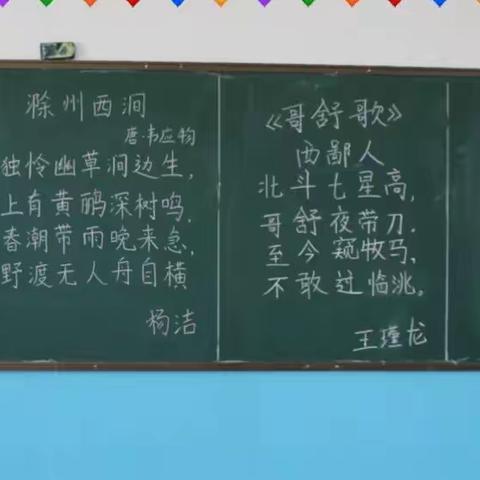 滁州西涧
唐·韦应物
独怜幽草涧边生,
上有黄鹂深树鸣.
春潮带雨晚来急,
野渡无人舟自横
杨洁
《哥舒歌》
西鄙人
北斗七星高,
哥舒夜带刀.
至今窥牧马,
不敢过临洮。
王瑾龙